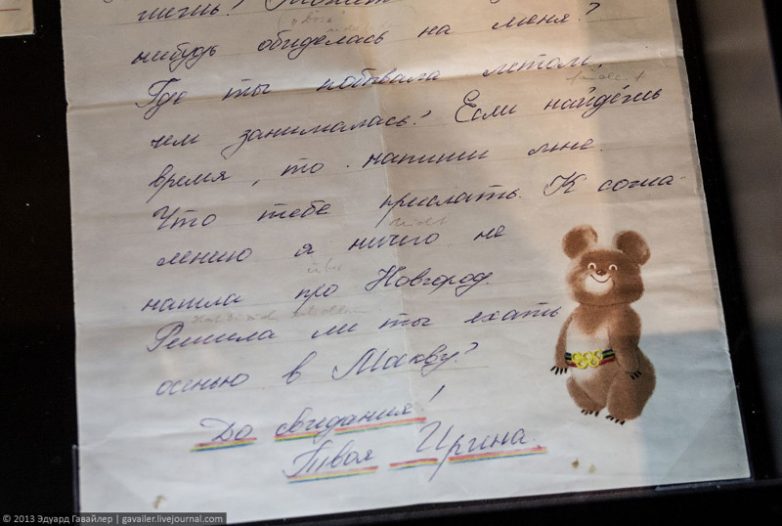 нибудь обиделась на меня?
Где ты побывала летом,
чем занималась? Если найдёшь
время, то напиши мне.
Что тебе прислать. К сожа-
лению я ничего не
нашла про Новгород.
Решила ли ты ехать
осенью в Москву?
До свидания!
Твоя Ирина.
© 2013 Эдуард Гавайлер | gavailer.livejournal.com